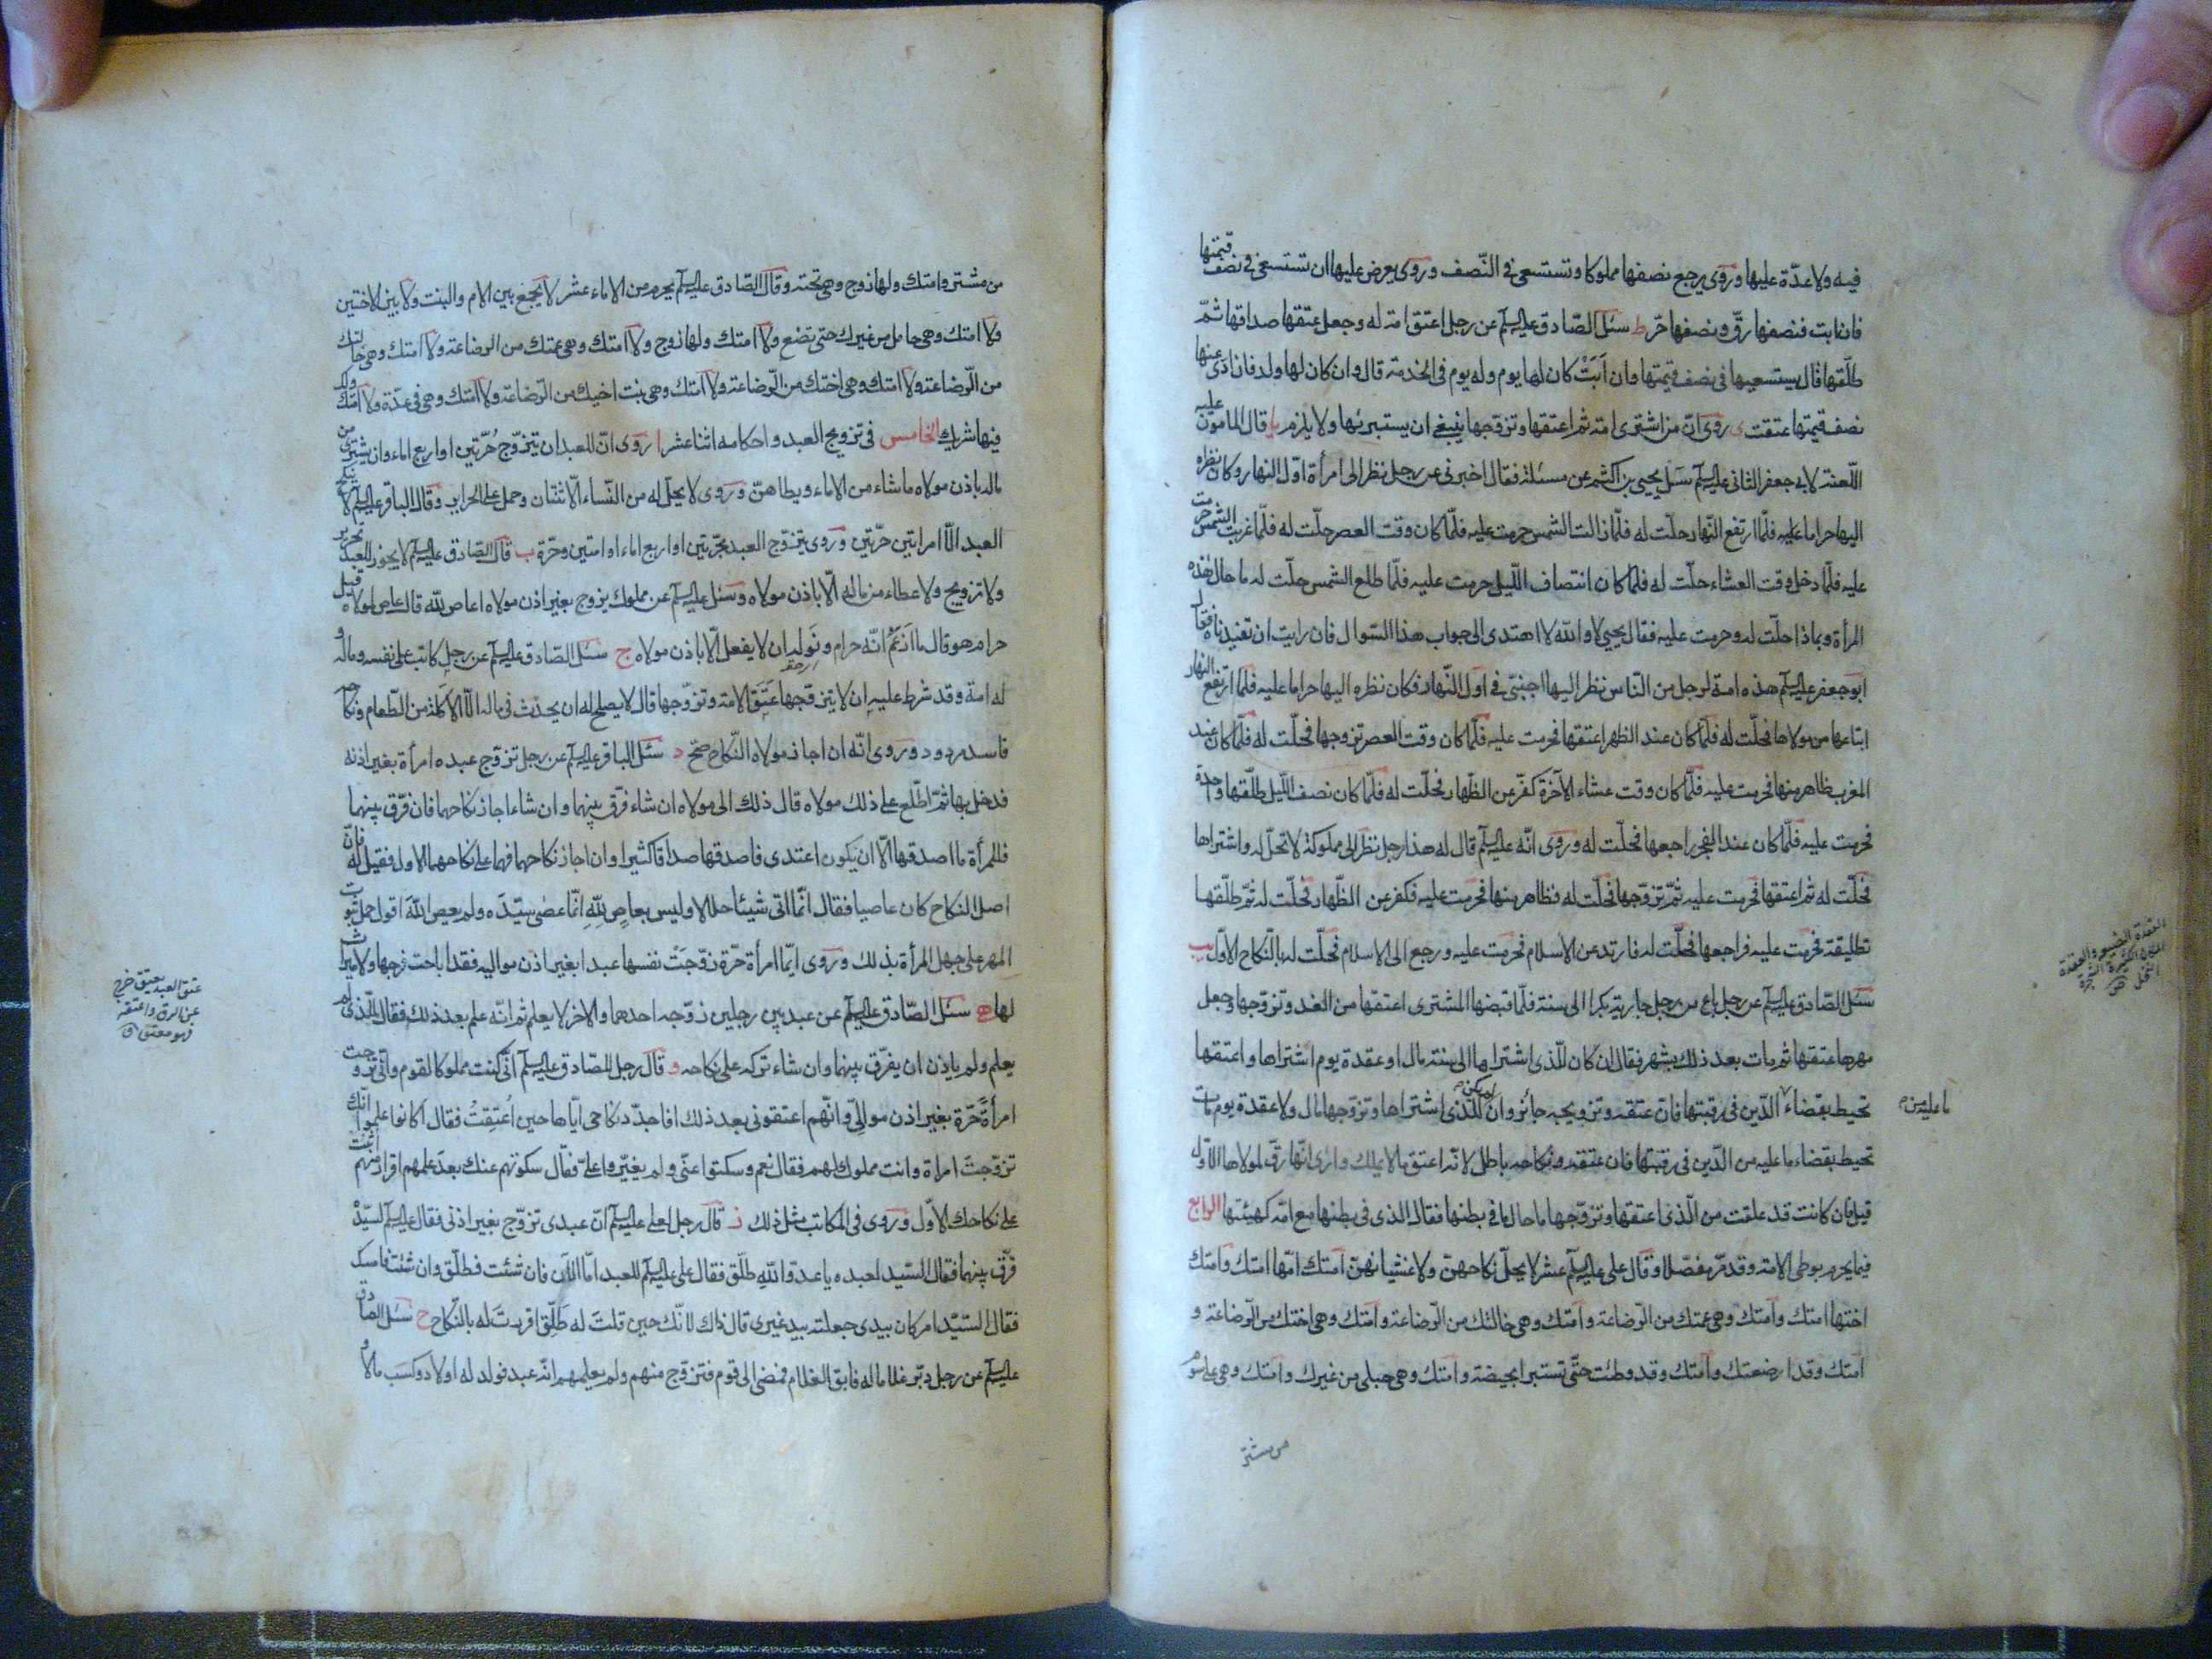 فيه ولا عدّة عليها وروى يرجع نصفها مملوكا وتستسعى فى النّصف وروى يعرض عليها ان تستسعى فى نصف قيمتها
فان ابت فنصفها رقّ ونصفها حرّ ط سئل الصّادق عليه السلم عن رجل اعتق امة له وجعل عتقها صداقها ثمّ
طلّقها قال يستسعيها فى نصف قيمتها وان اَبَتْ كان لها يوم وله يوم فى الخدمة قال وان كان لها ولد فان ادى عنها
نصف قيمتها عتقت ى روى انّ من اشترى امة ثم اعتقها وتزوّجها ينبغى ان يستبرئها ولا يلزم يا قال المامون عليه
اللّعنة لابى جعفر الثانى عليه السلم سَل يحيى بن اكثم عن مسئلة فقال اخبرنى عن رجل نظر الى امرأة اوّل النهار وكان نظره
اليها حراما عليه فلمّا ارتفع النّهار حلّت له فلمّا زالت الشمس حرمت عليه فلمّا كان وقت العصر حلّت له فلمّا غربت الشمس حرمت
عليه فلمّا دخل وقت العشاء حلّت له فلمّا كان انتصاف اللّيل حرمت عليه فلمّا طلع الشمس حلّت له ما حال هذه
المرأة وبماذا حلّت له وحرمت عليه فقال يحيى لا والله لا اهتدى الى جواب هذا السّوال فان رايت ان تفيدناه فقال
ابو جعفر عليه السلم هذه امة لرجل من النّاس نظر اليها اجنبىّ فى اول النّهار فكان نظره اليها حراما عليه فلمّا ارتفع النهار
ابتاعها من مولاها فحلّت له فلمّا كان عند الظهر اعتقها فحرمت عليه فلمّا كان وقت العصر تزوجها فحلّت له فلمّا كان عند
المغرب ظاهر منها فحرمت عليه فلمّا كان وقت عشاء الآخرة كفّر عن الظّهار فحلّت له فلمّا كان نصف اللّيل طلّقها واحدة
فحرمت عليه فلمّا كان عند الفجر راجعها فحلّت له وروى انّه عليه السلم قال له هذا رجل نظر الى مملوكة لا تحلّ له واشتراها
فحلّت له ثم اعتقها فحرمت عليه ثمّ تزوّجها فحلّت له فظاهر منها فحرمت عليه فكفر عن الظّهار فحلّت له ثمّ طلّقها
تطليقة فحرمت عليه فراجعها فحلّت له فارتد عن الاسلام فحرمت عليه ورجع الى الاسلام فحلّت له بالنّكاح الاوّل يب
سئل الصّادق عليه السلم عن رجل باع من رجل جارية بكرا الى سنة فلمّا قبضها المشترى اعتقها من الغد وتزوّجها وجعل
مهرها عتقها ثم مات بعد ذلك بشهر فقال ان كان للّذى اشتراها الى سنة مال او عقدة يوم اشتراها واعتقها
تحيط بقضاء الدّين فى رقبتها فانّ عتقه وتزويجه جائز وان لم يكن للّذى اشتراها وتزوّجها مال ولا عقدة يوم مات
ما عليه من
تحيط بقضاء ما عليه من الدّين فى رقبتها فان عتقه ونكاحه باطل لانّه اعتق ما لا يملك وارى انّها رقّ لمولاها الاوّل
قيل فان كانت قد علقت من الّذى اعتقها وتزوّجها ما حال ما فى بطنها فقال الذى فى بطنها مع امّه كهيئتها الرابع
فيما يحرم بوطى الامة وقد مرّ مفصّلا وقال على عليه السلم عشر لا يحلّ نكاحهنّ ولا غشيانهنّ امتك امّها امتك وامتك
اختها امتك وامتك وهى عمتك من الرّضاعة وامتك وهى خالتك من الرّضاعة وامتك وهى اختك من الرّضاعة و
امتك وقد ارضعتك وامتك وقد وطئت حتّى تستبرا بحيضة وامتك وهى حبلى من غيرك وامتك وهى على سوم
من مشتر
من مشتر وامتك ولها زوج وهى تحته وقال الصّادق عليه السلم يحرم من الاماء عشر لا يجمع بين الام والبنت ولا بين الاختين
ولا امتك وهى حامل من غيرك حتى تضع ولا امتك ولها زوج ولا امتك وهى عمتك من الرضاعة ولا امتك وهى خالتك
من الّرضاعة ولا امتك وهى اختك من الّرضاعة ولا امتك وهى بنت اخيك من الّرضاعة ولا امتك وهى فى عدّة ولا امتك ولك
فيها شريك الخامس فى تزويج العبد واحكامه اثنا عشر ا روى انّ للعبد ان يتزوّج حُرّتين او اربع اماء وان يشترى من
ماله باذن مولاه ما شاء من الاماء ويطاهنّ وروى لا يحلّ له من النّساء الّا ثنتان وحمل على الحراير وقال الباقر عليه السلم لا ينكح
العبد الّا امراتين حرّتين وروى يتزوّج العبد بحرّتين او اربع اماء او امتين وحرّة ب قال الصّادق عليه السلم لا يجوز للعبد تحرير
ولا تزويج ولا عطاء من ماله الّا باذن مولاه وسئل عليه السلم عن مملوك يزوج بغير اذن مولاه اعاص لله قال عاص لمولاه قيل
حرام هو قال ما ازعُمُ انّه حرام ونَولِه ان لا يفعل الّا باذن مولاه ج سئل الصّادق عليه السلم عن رجل كاتب على نفسه وماله و
له امة وقد شرط عليه ان لا يتزوّجها عَتَقَ الامة وتزوّجها قال لا يصلح له ان يحدث فى ماله الّا الاكلة من الطّعام ونكاحه
فاسد مردود وروى انّه ان اجاز مولاه النّكاح صحّ د سئل الباقر عليه السلم عن رجل تزوّج عبده امرأة بغير اذنه
فدخل بها ثمّ اطّلع على ذلك مولاه قال ذلك الى مولاه ان شاء فرّق بينهما وان شاء اجاز نكاحهما فان فرّق بينهما
فللمرأة ما اصدقها الّا ان يكون اعتدى فاصدقها صداقا كثيرا وان اجاز نكاحهما فهما على نكاحهما الاول فقيل له فانّ
اصل النكاح كان عاصيا فقال انّما اتى شيئا حلالا وليس بعاصٍ لِلّهِ انّما عصٰى سيّدَه ولم يعص اللّهَ اقول حمل ثبوت
المهر على جهل المرأة بذلك وروى ايّما امرأة حرّة زوّجَتْ نفسها عبدا بغير اذن مواليه فقد اباحت فرجها ولا ميراث
لها ه سئل الصّادق عليه السلم عن عبد بين رجلين زوّجه احدهما والاخر لا يعلم ثم انّه علم بعد ذلك فقال للّذى لم
يعلم ولم ياذن ان يفرّق بينهما وان شاء تركه على نكاحه و قال رجل للصّادق عليه السلم انّى كنت مملوكا لقوم وانّى تزوجت
امرأةً حرّة بغير اذن موالِىّ وانّهم اعتقونى بعد ذلك افاجدّد نكاحى ايّاها حين اُعتِقتُ فقال اكانوا علموا انّك
تزوّجتَ امراة وانت مملوك لهم فقال نعم وسكتوا عنّى ولم يغيّروا علىّ فقال سكوتهم عنك بعدَ علمهم اقرار منهم اثبُتْ
على نكاحك الاوّل وروى فى المكاتب مثل ذلك ز قال رجل لعلى عليه السلم انّ عبدى تزوّج بغير اذنى فقال عليه السلم لسيّدْه
فرّق بينهما فقال السّيد لعبده يا عدوّ اللّهِ طلّق فقال على عليه السلم للعبد امّا الآن فان شئت فطلّق وان شئت فامسك
فقال السّيّد امر كان بيدى جعلته بيد غيرى قال ذاك لانّك حين قلتَ له طَلِّق اقررتَ له بالنّكاح ح سئل الصّادق
عليه السلم عن رجل دبّر غلاما له فابق الغلام فمضى الى قوم فتزوّج منهم ولم يعلمهم انّه عبد فولد له اولاد وكسَب مالا و
عتق العبد يعتق خرج
عن الرق واعتقه
فهو معتق ق